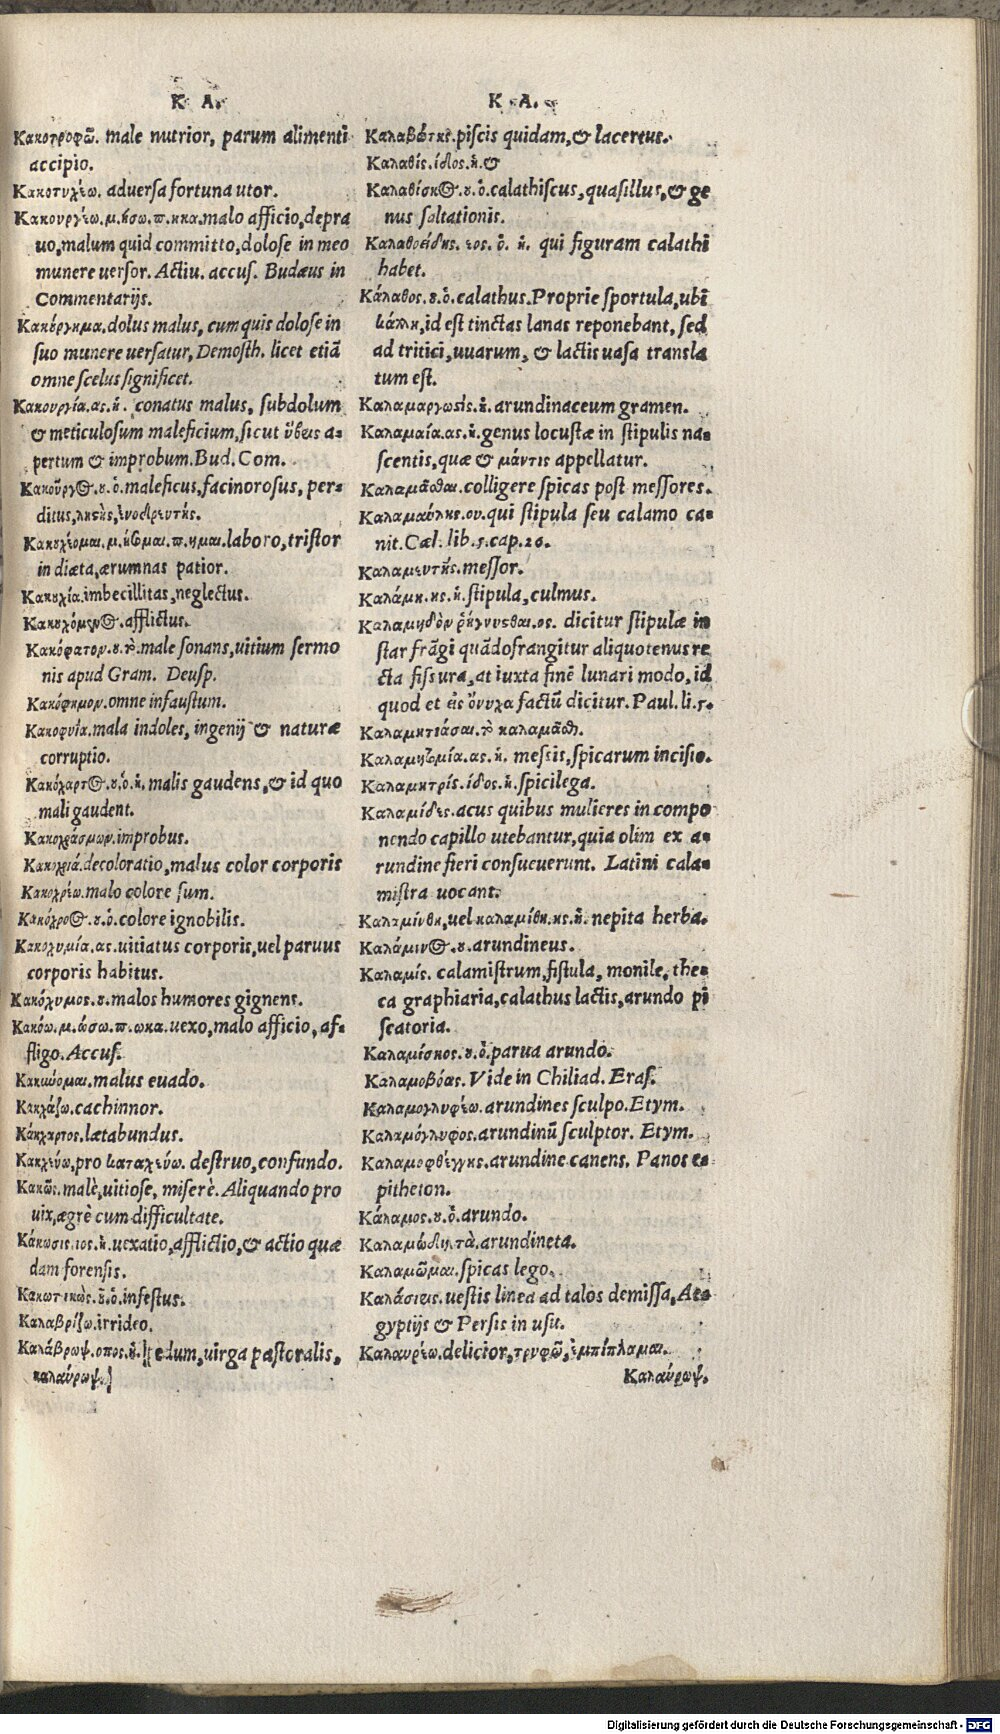 K A.
Κακοτροφῶ. male nutrior, parum alimenti
accipio.
Κακοτυχέω. adversa fortuna utor.
Κακουργέω. μ. ήσω. π. ηκα. malo afficio, depra
uo, malum quid committo, dolose in meo
munere uersor. Actiu. accus. Budæus in
Commentarijs.
Κακούργημα. dolus malus, cum quis dolose in
suo munere uersatur, Demosth. licet etiã
omne scelus significet.
Κακουργία. ας. ἡ. conatus malus, subdolum
& meticulosum maleficium, sicut ὕβρις a-
pertum & improbum. Bud. Com.
Κακοῦργος. ου. ὁ. maleficus, facinorosus, per-
ditus, λῃστὴς, ἐνεδρευτής.
Κακουχέομαι. μ. ήσομαι. π. ημαι. laboro, tristor
in diæta, ærumnas patior.
Κακουχία. imbecillitas, neglectus.
Κακουχόμενος. afflictus.
Κακόφατον. ου. τὸ. male sonans, uitium sermo
nis apud Gram. Deusp.
Κακόφημον. omne infaustum.
Κακοφυΐα. mala indoles, ingenij & naturæ
corruptio.
Κακόχαρτος. ου. ὁ. ἡ. malis gaudens, & id quo
mali gaudent.
Κακοχράσμων. improbus.
Κακοχριά. decoloratio, malus color corporis
Κακοχρέω. malo colore sum.
Κακόχροος. ου. ὁ. colore ignobilis.
Κακοχυμία. ας. uitiatus corporis, uel paruus
corporis habitus.
Κακόχυμος. ου. malos humores gignens.
Κακόω. μ. ώσω. π. ωκα. uexo, malo afficio, af-
fligo. Accus.
malus euado.
Κακχάζω. cachinnor.
Κάκχαρτος. lætabundus.
Κακχεύω, pro καταχεύω. destruo, confundo.
Κακῶς. malè, uitiose, miserè. Aliquando pro
uix, ægrè cum difficultate.
Κάκωσις. ιος. ἡ. uexatio, afflictio, & actio quæ
dam forensis.
Κακωτικὸς. οῦ. ὁ. infestus.
Καλαβρίζω. irrideo.
Καλάβρωψ. οπος. ἡ. pedum, uirga pastoralis,
καλαύρωψ.
K A.
Καλαβώτης. piscis quidam, & lacertus.
Καλαθίς. ίδος. ἡ. &
Καλαθίσκος. ου. ὁ. calathiscus, quasillus, & ge
nus saltationis.
Καλαθοειδής. έος. ὁ. ἡ. qui figuram calathi
habet.
Κάλαθος. ου. ὁ. calathus. Proprie sportula, ubi
κάλλη, id est tinctas lanas reponebant, sed
ad tritici, uuarum, & lactis uasa transla
tum est.
Καλαμαργωσὶς. ἡ. arundinaceum gramen.
Καλαμαία. ας. ἡ. genus locustæ in stipulis na-
scentis, quæ & μάντις appellatur.
Καλαμᾶσθαι. colligere spicas post messores.
Καλαμαύλης. ου. qui stipula seu calamo ca-
nit. Cæl. lib. 5. cap. 26.
Καλαμευτής. messor.
Καλάμη. ης. ἡ. stipula, culmus.
Καλαμηδὸν ῥήγνυσθαι. ος. dicitur stipulæ in
star frãgi quãdo frangitur aliquotenus re
cta fissura, at iuxta finẽ lunari modo, id
quod et εἰς ὄνυχα factũ dicitur. Paul. li. 5.
Καλαμητιάσαι. τὸ καλαμᾶσθαι.
Καλαμητομία. ας. ἡ. messis, spicarum incisio.
Καλαμητρίς. ίδος. ἡ. spicilega.
Καλαμίδες. acus quibus mulieres in compo
nendo capillo utebantur, quia olim ex a-
rundine fieri consueuerunt. Latini cala-
mistra uocant.
Καλαμίνθη, uel καλαμίθη. ης. ἡ. nepita herba.
Καλάμινος. ου. arundineus.
Καλαμίς. calamistrum, fistula, monile, the-
ca graphiaria, calathus lactis, arundo pi
scatoria.
Καλαμίσκος. ου. ὁ. parua arundo.
Καλαμοβόας. Vide in Chiliad. Eras.
Καλαμογλυφέω. arundines sculpo. Etym.
Καλαμόγλυφος. arundinũ sculptor. Etym.
Καλαμοφθέγγης. arundine canens. Panos e-
pitheton.
Κάλαμος. ου. ὁ. arundo.
Καλαμώδη, τὰ. arundineta.
Καλαμῶμαι. spicas lego.
Καλάσιρις. uestis linea ad talos demissa, Ae-
gyptijs & Persis in usu.
Καλαυρέω. delicior, τρυφῶ, ἐμπίπλαμαι.
Καλαύρωψ.
Digitalisierung gefördert durch die Deutsche Forschungsgemeinschaft - DFG